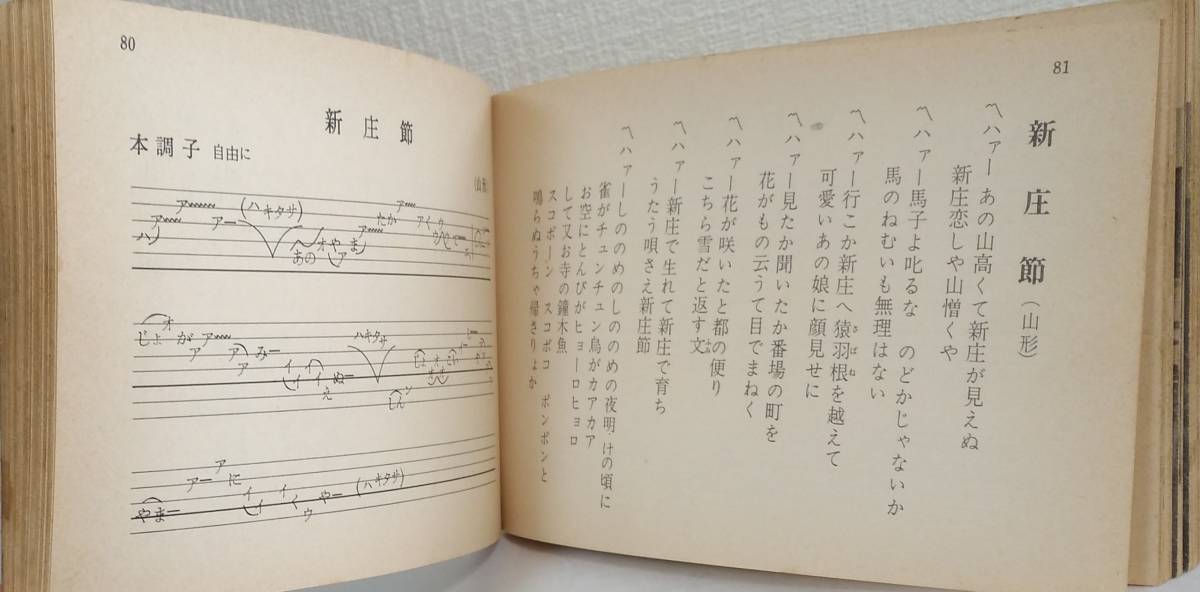 80
新庄節
(山形)
本調子 自由に
ハ アー アー (ハキタサ) あの オ や ア ま アー たか アー
じょ オ が ア アー ア ア みー イ イ イ え ぬー ハキタサ しん ン
やまー アー ア に イ イ イ く ウ やー (ハキタサ)
81
新庄節(山形)
〽ハァー あの山高くて新庄が見えぬ
新庄恋しや山憎くや
〽ハァー馬子よ叱るな のどかじゃないか
馬のねむいも無理はない
〽ハァー行こか新庄へ猿羽根を越えて
さばね
可愛いあの娘に顔見せに
〽ハァー見たか聞いたか番場の町を
花がもの云うて目でまねく
〽ハァー花が咲いたと都の便り
こちら雪だと返す文
ふみ
〽ハァー新庄で生れて新庄で育ち
うたう唄さえ新庄節
〽ハァーしののめのしののめの夜明けの頃に
雀がチュンチュン烏がカアカア
お空にとんびがヒョーロヒョロ
して又お寺の鐘木魚
スコポーン スコポコ ポンポンと
鳴らぬうちゃ帰さりょか